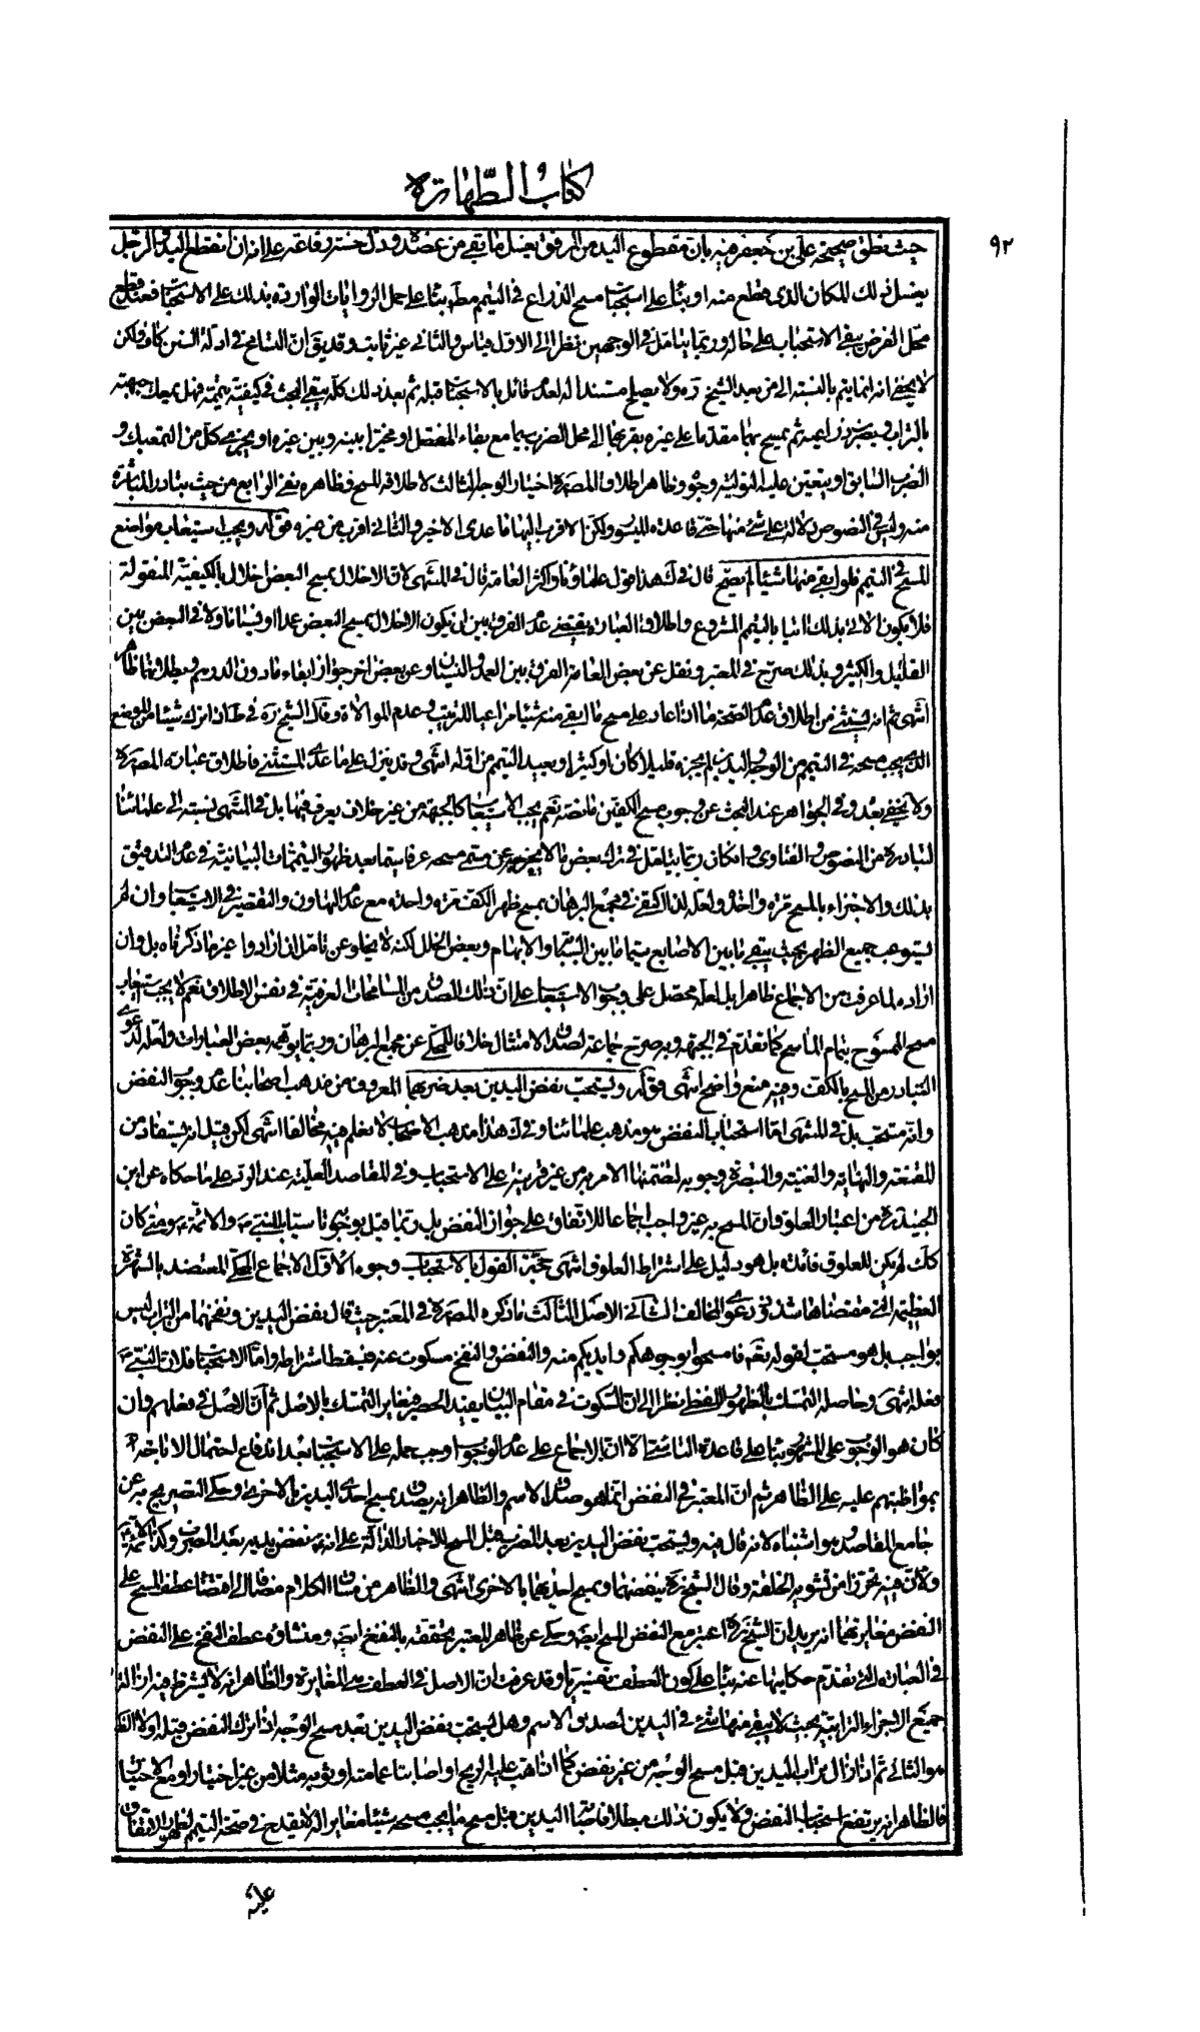 كتاب الطهارة
٩٢
حيث نطق صحيحة علي بن جعفر فيه بان مقطوع اليد من المرفق يغسل ما بقي من عضده ودل خبر رفاعة على انه ان انقطع اليد والرجل
يغسل ذلك المكان الذي قطع منه او بناء على استحباب مسح الذراع في التيمم مطلقا بناء على حمل الروايات الواردة بذلك على الاستحباب فعند قطع
محل الفرض يبقى الاستحباب على حاله وربما يتامل في الوجهين نظرا الى الاول قياس والثاني غير ثابت وقد يق ان التسامح في ادلة السنن كاف ولكن
لا يخفى انه انما يتم بالنسبة الى من بعد الشيخ ره ولا يصلح مستندا له لعدم قائل بالاستحباب قبله ثم بعد ذلك كله يبقى البحث في كيفية تيممه فهل يمعك جبهته
بالتراب و ذراعيه ثم يمسح بهما مقدما على غيره بقربهما الى محل الضرب سيما مع بقاء المفصل او مخيرا بينه وبين غيره او يجزي كل من التمعيك و
الضرب السابق او يتعين عليه التولية وجوه وظاهر اطلاق المصره اختيار الوجه الثالث لاطلاقه المسح وظاهره نفي الرابع من حيث تبادر المباشرة
منه وليس في النصوص دلالة على شئ منها حتى قاعدة الميسور ولكن الاقرب اليها ما عدى الاخير والثاني اقرب من غيره قوله ويجب استيعاب مواضع
المسح في التيمم فلو ابقى منها شيئا لم يصح قال في ك هذا قول علمائنا واكثر العامة قال في المنتهى لان الاخلال بمسح البعض اخلال بالكيفية المنقولة
فلا يكون الاتي بذلك اتيا بالتيمم المشروع واطلاق العبارة يقتضي عدم الفرق بين ان يكون الاخلال بمسح البعض عمدا او نسيانا ولا في البعض بين
القليل والكثير وبذلك صرح في المعتبر ونقل عن بعض العامة الفرق بين العمد والنسيان وعن بعض اخر جواز ابقاء ما دون الدرهم وبطلانهما ظاهر
انتهى ثم انه يستثنى من اطلاق عدم الصحة ما اذا عاد على مسح ما ابقى منه شيئا مراعيا للترتيب وعدم الموالاة وقال الشيخ ره في ط اذا ترك شيئا من الموضع
الذي يجب مسحه في التيمم من الوجه واليدين لم يجزه قليلا كان او كثيرا ويعيد التيمم من اوله انتهى وقد ينزل على ما عدى المستثنى فاطلاق عبارة المصره
ولا يخفى بعده وفي الجواهر عند البحث عن وجوب مسح الكفين ما نصه نعم يجب الاستيعاب كالجبهة من غير خلاف يعرف فيهما بل في المنتهى نسبته الى علمائنا
لتبادره من النصوص والفتاوى وان كان ربما يتامل في ترك بعض ما لا يخرجه عن مسمى مسحه عرفا سيما بعد ظهور التيممات البيانية في عدم التدقيق
بذلك والاجتزاء بالمسح مرة واحدة ولعله لذا اكتفى في مجمع البرهان بمسح ظهر الكف مرة واحدة مع عدم التهاون والتقصير في الاستيعاب وان لم
يستوعب جميع الظهر بحيث يبقى ما بين الاصابع سيما ما بين السبابة والابهام وبعض الخلل لكنه لا يخلو عن تامل ان ارادوا غير ما ذكرناه بل وان
اراده لما عرفت من الاجماع ظاهرا بل لعله محصل على وجوب الاستيعاب على ان ذلك الصدق من المسامحات العرفية في نفس الاطلاق نعم لا يجب استيعاب
مسح الممسوح بتمام الماسح كما تقدم في الجبهة وبه صرح جماعة لصدق الامتثال خلافا للمحكي عن مجمع البرهان وربما يوهمه بعض العبارات ولعله لدعوى
التبادر من المسح بالكف وفيه منع واضح انتهى قوله ويستحب نفض اليدين بعد ضربهما المعروف من مذهب اصحابنا عدم وجوب النفض
وانه مستحب بل في المنتهى اما استحباب النفض فهو مذهب علمائنا وفي ك هذا مذهب الاصحاب لا نعلم فيه مخالفا انتهى لكن قيل انه يستفاد من
المقنعة والنهاية والغنية والتبصرة وجوبه لتضمنها الامر به من غير قرينة على الاستحباب وفي المقاصد العلية عند الرد على ما حكاه عن ابن
الجنيد ره من اعتبار العلوق وان المسح به غير واجب اجماعا للاتفاق على جواز النفض بل ربما قيل بوجوبه تاسيا بالنبي ص والائمة ع ومتى كان
كك لم يكن للعلوق فائدة بل هو دليل على اشتراط العلوق انتهى حجة القول بالاستحباب وجوه الاول الاجماع المحكي المعتضد بالشهرة
العظيمة التي مقتضاها شذوذ دعوى المخالف الثاني الاصل الثالث ما ذكره المصره في المعتبر حيث قال نفض اليدين ونفخهما من التراب ليس
بواجب بل هو مستحب لقوله تعالى فامسحوا بوجوهكم وايديكم منه والنفض والنفخ مسكوت عنه فيسقط اشتراطه واما الاستحباب فلان النبي ص
فعله انتهى وحاصله التمسك بالظهور اللفظي نظرا الى ان السكوت في مقام البيان يفيد الحصر فيغاير التمسك بالاصل ثم ان الاصل في فعلهم وان
كان هو الوجوب على المشهور بناء على قاعدة التاسي الا ان الاجماع على عدم الوجوب اوجب حمله على الاستحباب بعد اندفاع احتمال الاباحة
بمواظبتهم عليه على الظاهر ثم ان المعتبر في النفض انما هو صدق الاسم والظاهر انه يصدق بمسح احدى اليدين بالاخرى وحكى التصريح به عن
جامع المقاصد وهو اشتباه لانه قال فيه ويستحب نفض اليدين بعد الضرب قبل المسح للاخبار الدالة على انه ص نفض يديه بعد الضرب وكذا الائمة ع
ولان فيه تحرزا من تشويه الخلقة وقال الشيخ ره ينفضهما ويمسح احدهما بالاخرى انتهى والظاهر من مساق الكلام مضافا الى اقتضاء عطف المسح على
النفض مغايرتهما انه يريد ان الشيخ ره اعتبر مع النفض المسح ايضا وحكى عن ظاهر المعتبر تحققه بالنفخ ايضا ومنشاؤه عطف النفخ على النفض
في العبارة التي تقدم حكايتها عنه بناء على كون العطف تفسيريا وقد عرفت ان الاصل في العطف هي المغايرة والظاهر انه لا يشترط فيه ازالة
جميع الاجزاء الترابية بحيث لا يبقى منها شئ في اليدين لصدق الاسم وهل يستحب نفض اليدين بعد مسح الوجه اذا ترك النفض قبله اولا الظ
هو الثاني ثم اذا زال تراب اليدين قبل مسح الوجه من غير نفض كما اذا هب عليه الريح او اصابتا عمامته او ثوبه مثلا من غير اختيار او مع الاختيار
فالظاهر انه يرتفع استحباب النفض ولا يكون ذلك مطلا اصابتهما اليدين قبل مسح ما يجب مسحه شيئا مغايرا له لا يقدح في صحة التيمم لظهور الاتفاق
عليه